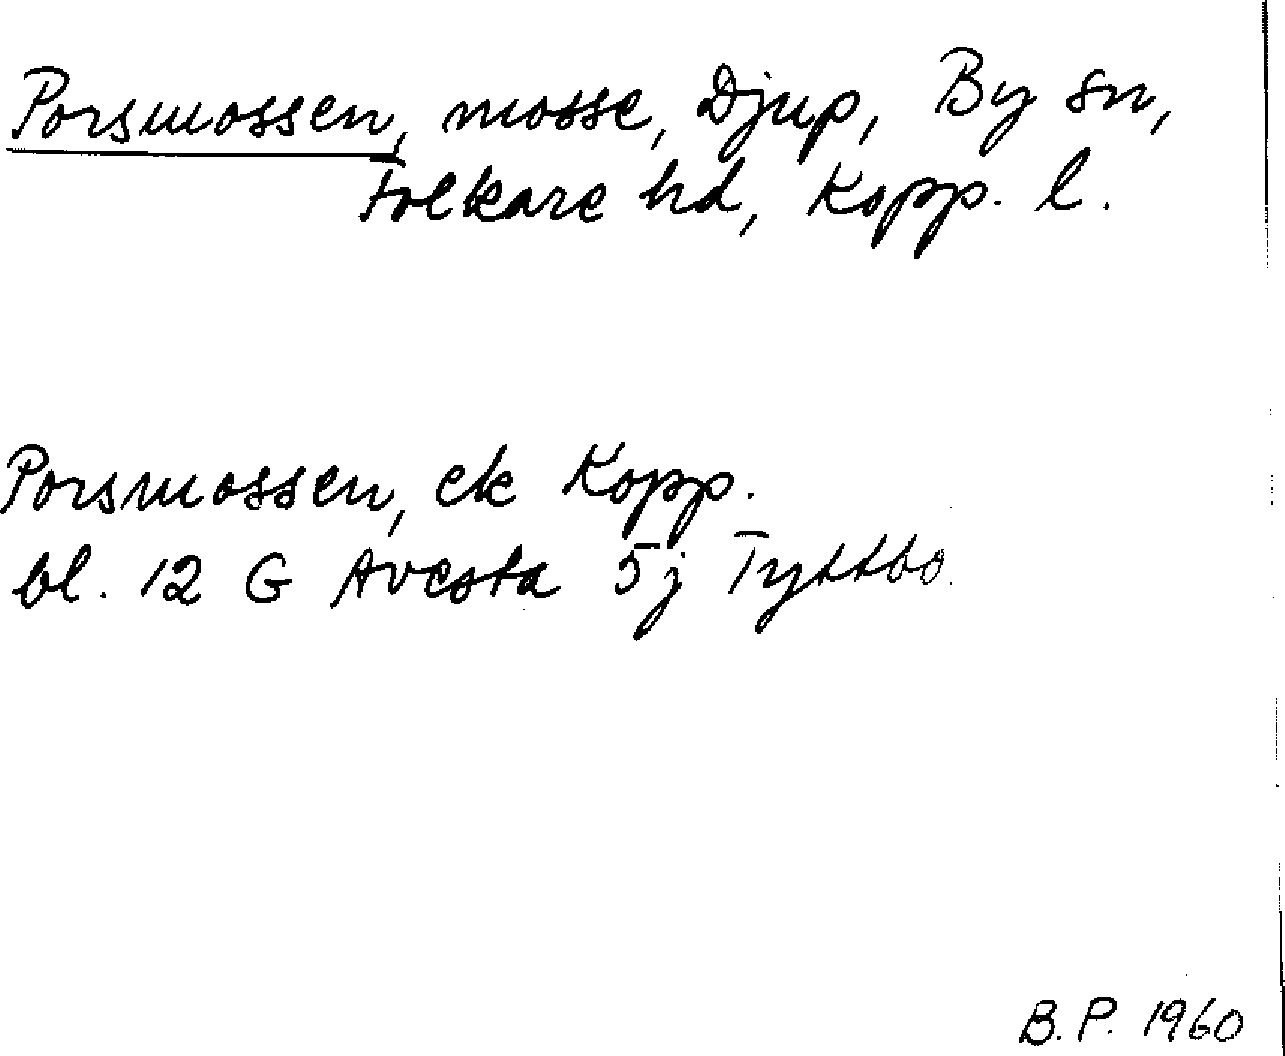 Porsmossen, mosse, Djup, By sn,
Folkare hd, Kopp. l.
Porsmossen, ek Kopp.
bl. 12 G Avesta 5j Tyttbo.
B.P. 1960